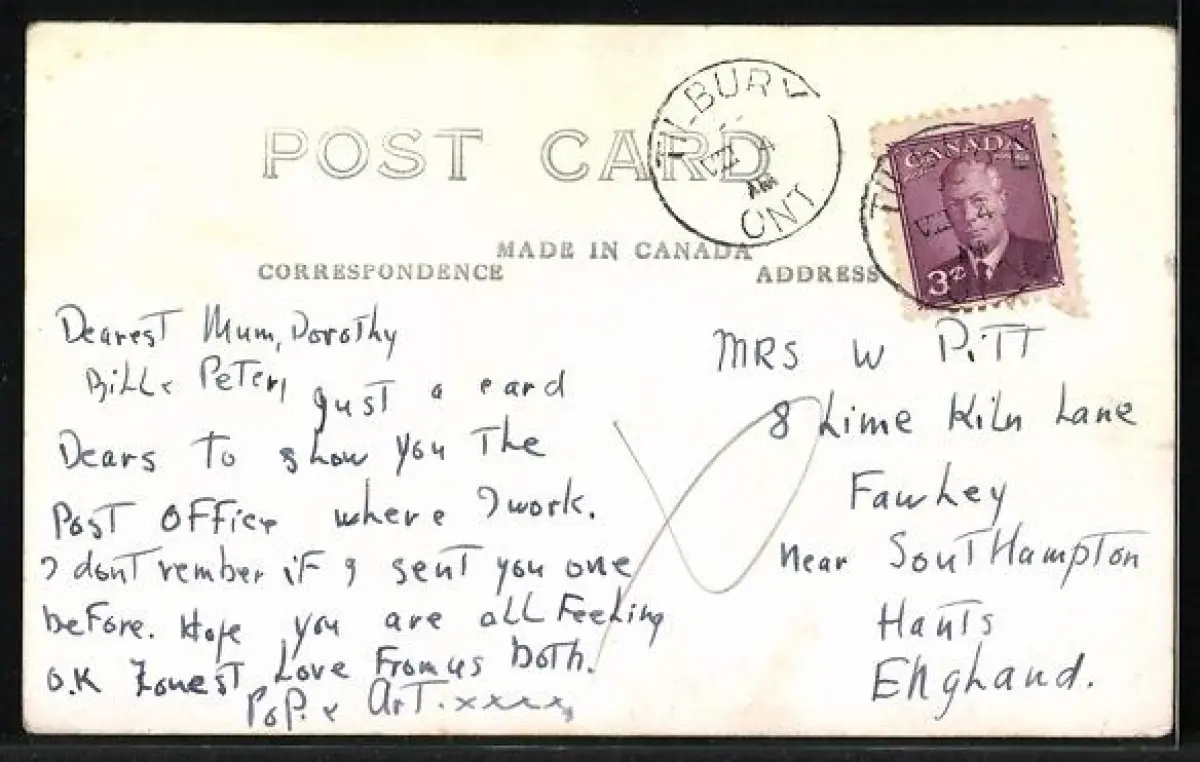 POST CARD
TILBURY
VII 4
AM
ONT
CANADA
3¢
MADE IN CANADA
CORRESPONDENCE
ADDRESS
Dearest Mum, Dorothy
Bill & Peter, Just a card
Dears To show you The
Post Office where I work.
I dont rember if I sent you one
before. Hope you are all Feeling
O.K Fonest Love From us both.
Pop. & Art. xxxx
MRS W PITT
8 Lime Kiln Lane
Fawley
Near SoutHampton
Hants
England.